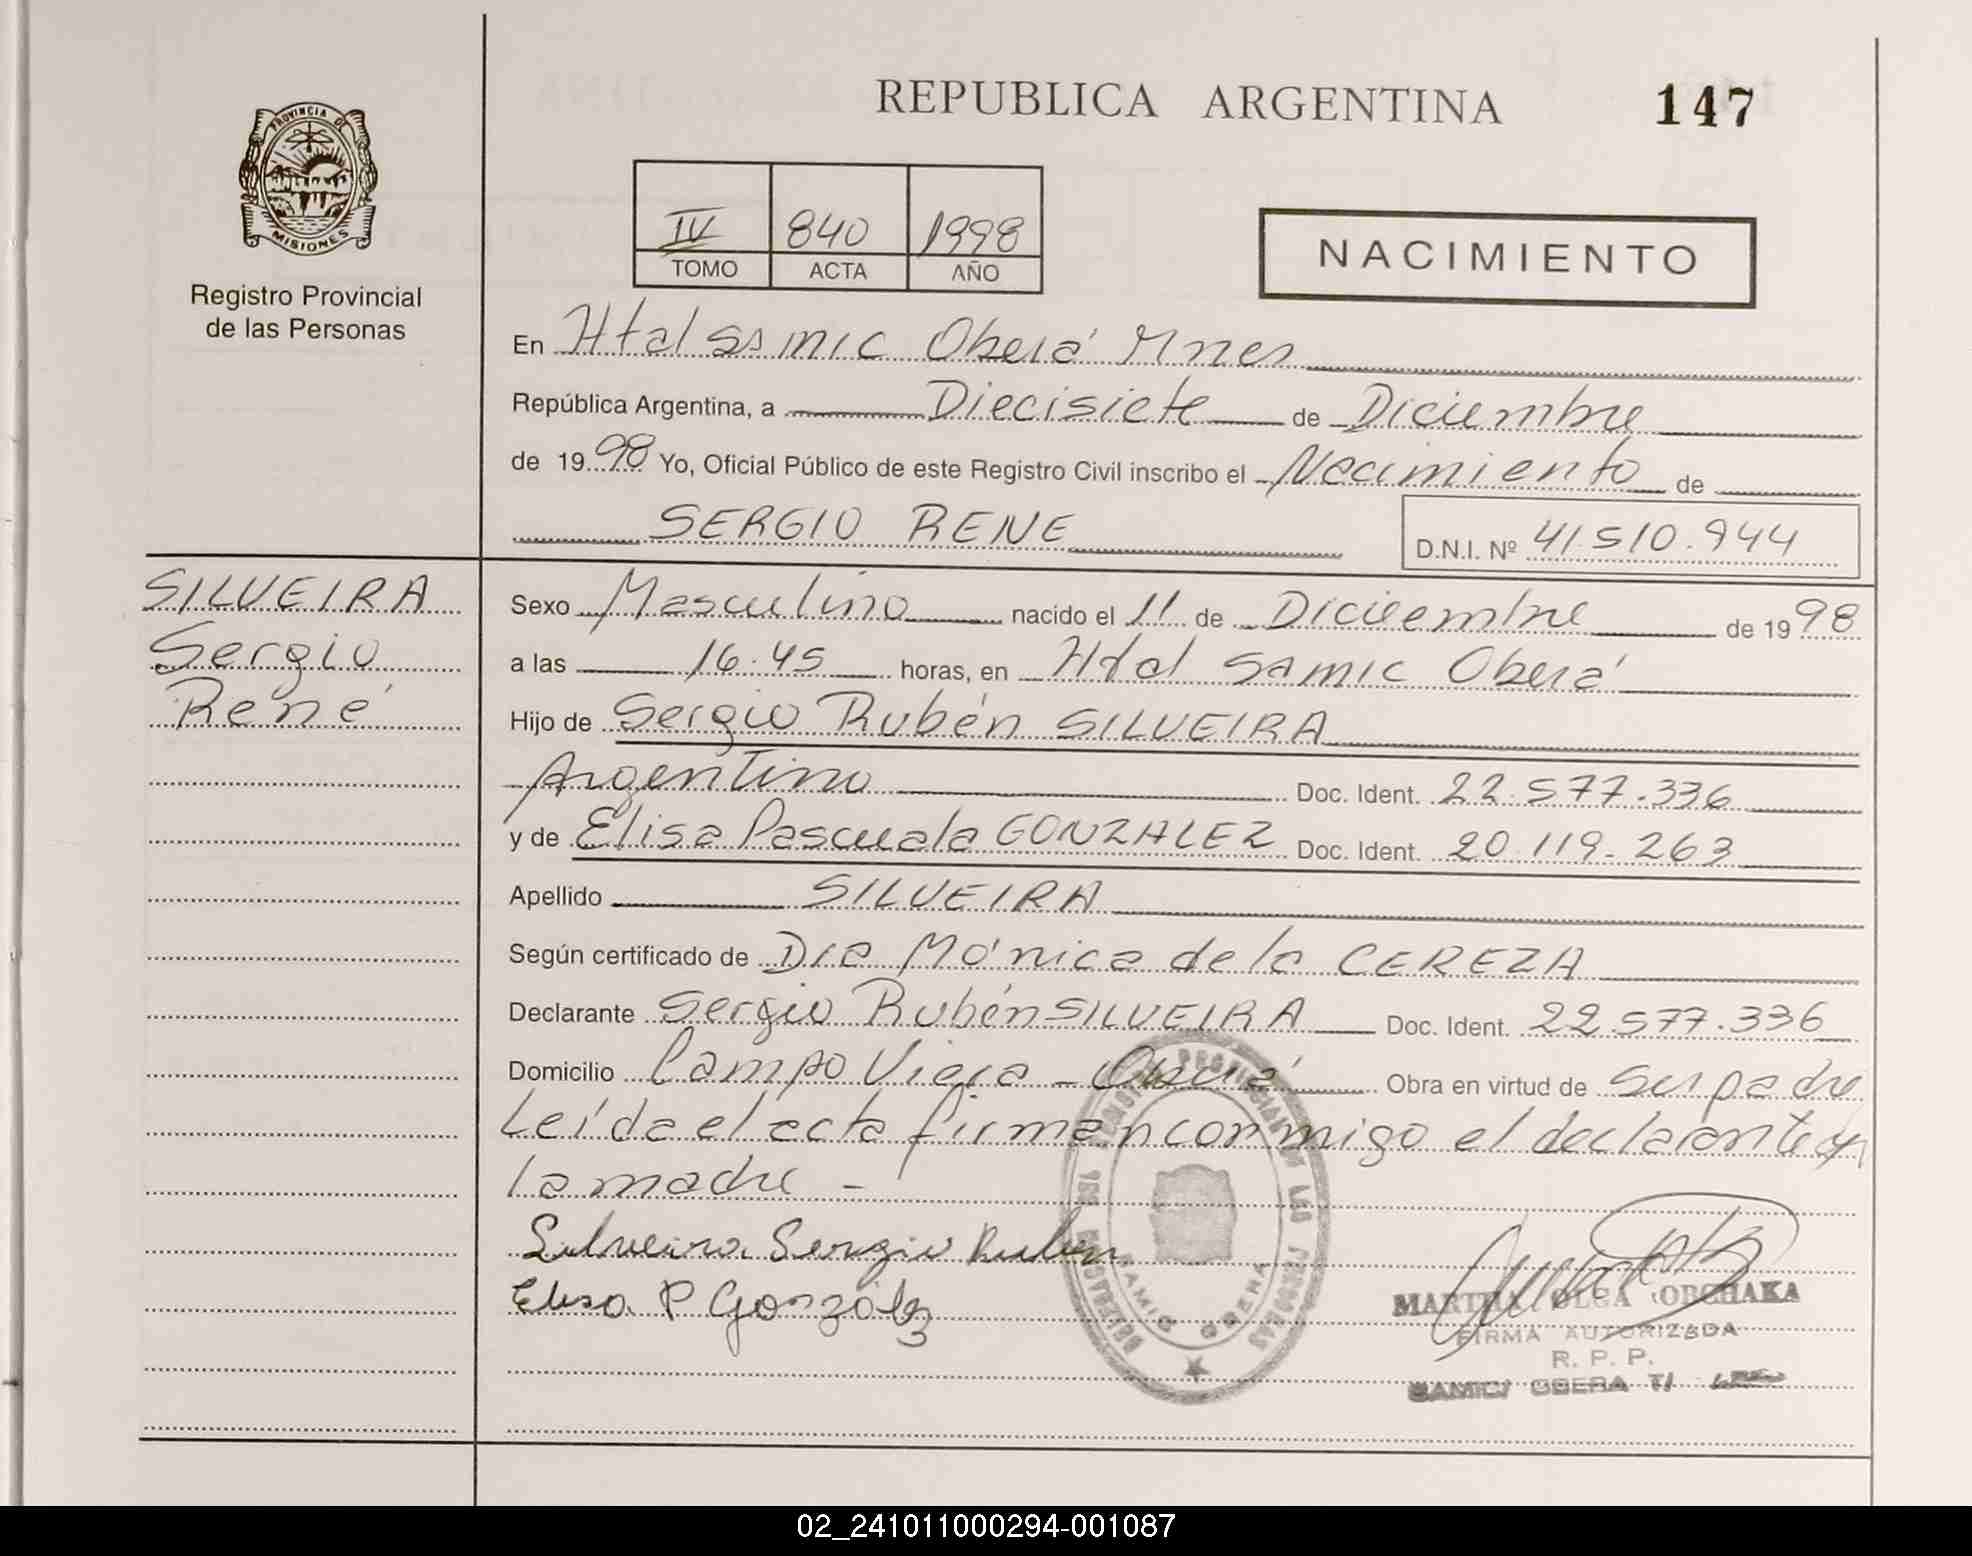 REPUBLICA ARGENTINA 147
PROVINCIA DE
MISIONES
Registro Provincial
de las Personas
IV 840 1998
TOMO ACTA AÑO
NACIMIENTO
En Htal Samic Oberá Mnes
República Argentina, a Diecisiete de Diciembre
de 1998 Yo, Oficial Público de este Registro Civil inscribo el Nacimiento de
SERGIO RENE D.N.I. Nº 41.510.944
SILVEIRA
Sergio
René
Sexo Masculino nacido el 11 de Diciembre de 1998
a las 16.45 horas, en Htal Samic Oberá
Hijo de Sergio Rubén SILVEIRA
Argentino Doc. Ident. 22.577.336
y de Elisa Pascuala GONZALEZ Doc. Ident. 20.119.263
Apellido SILVEIRA
Según certificado de Dra Mónica de la CEREZA
Declarante Sergio Rubén SILVEIRA Doc. Ident. 22.577.336
Domicilio Campo Viera - Oberá Obra en virtud de ser padre
Leída el acta firman conmigo el declarante y
la madre -
Silveira Sergio Ruben
Elisa P Gonzólez
SAMIC OBERA
MARTHA OLGA OBCHAKA
FIRMA AUTORIZADA
R. P. P.
SAMIC/ OBERA T/
02_241011000294-001087